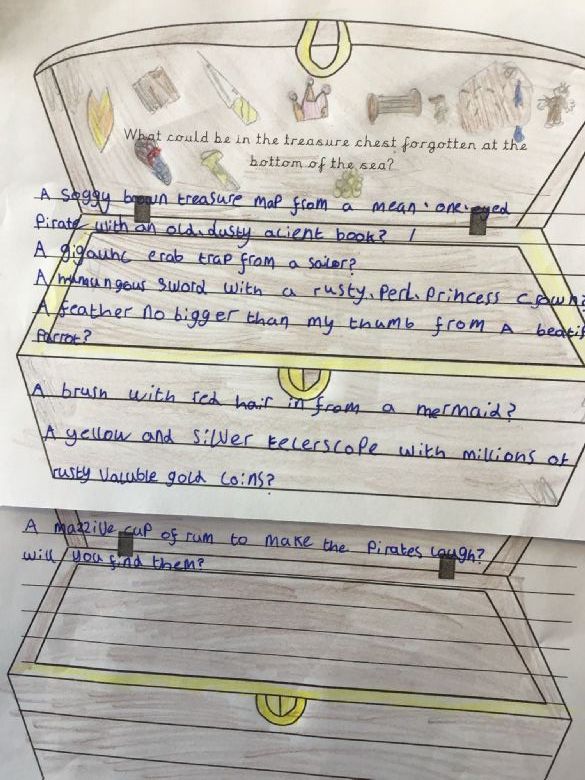 What could be in the treasure chest forgotten at the
bottom of the sea?
A soggy brown treasure map from a mean. one.eyed
Pirate with an old.dusty acient book?
A gigaunc crab trap from a sailor?
A humungeous sword with a rusty. Perl. Princess crown?
A feather no bigger than my thumb from A beatif
Parrot?
A brush with red hair in from a mermaid?
A yellow and silver telerscope with millions of
rusty valuble gold coins?
A mazzive cup of rum to make the Pirates laugh?
will you find them?